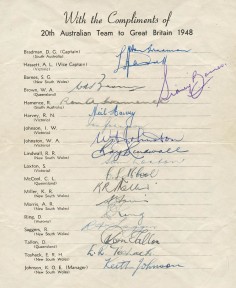 With the Compliments of
20th Australian Team to Great Britain 1948
Bradman, D. G. (Captain)
(South Australia)
Hassett, A. L. (Vice Captain)
(Victoria)
Barnes, S. G.
(New South Wales)
Brown, W. A.
(Queensland)
Hamence, R.
(South Australia)
Harvey, R. N.
Neil Harvey
(Victoria)
Johnson, I. W.
(Victoria)
Johnston, W. A.
(Victoria)
Lindwall, R. R.
(New South Wales)
Loxton, S.
(Victoria)
McCool, C. L.
(Queensland)
Miller, K. R.
(New South Wales)
Morris, A. R.
(New South Wales)
Ring, D.
(Victoria)
Saggers, R.
(New South Wales)
Tallon, D.
Don Tallon
(Queensland)
Toshack, E. R. H.
(New South Wales)
Johnson, K. O. E. (Manager)
Keith Johnson
(New South Wales)